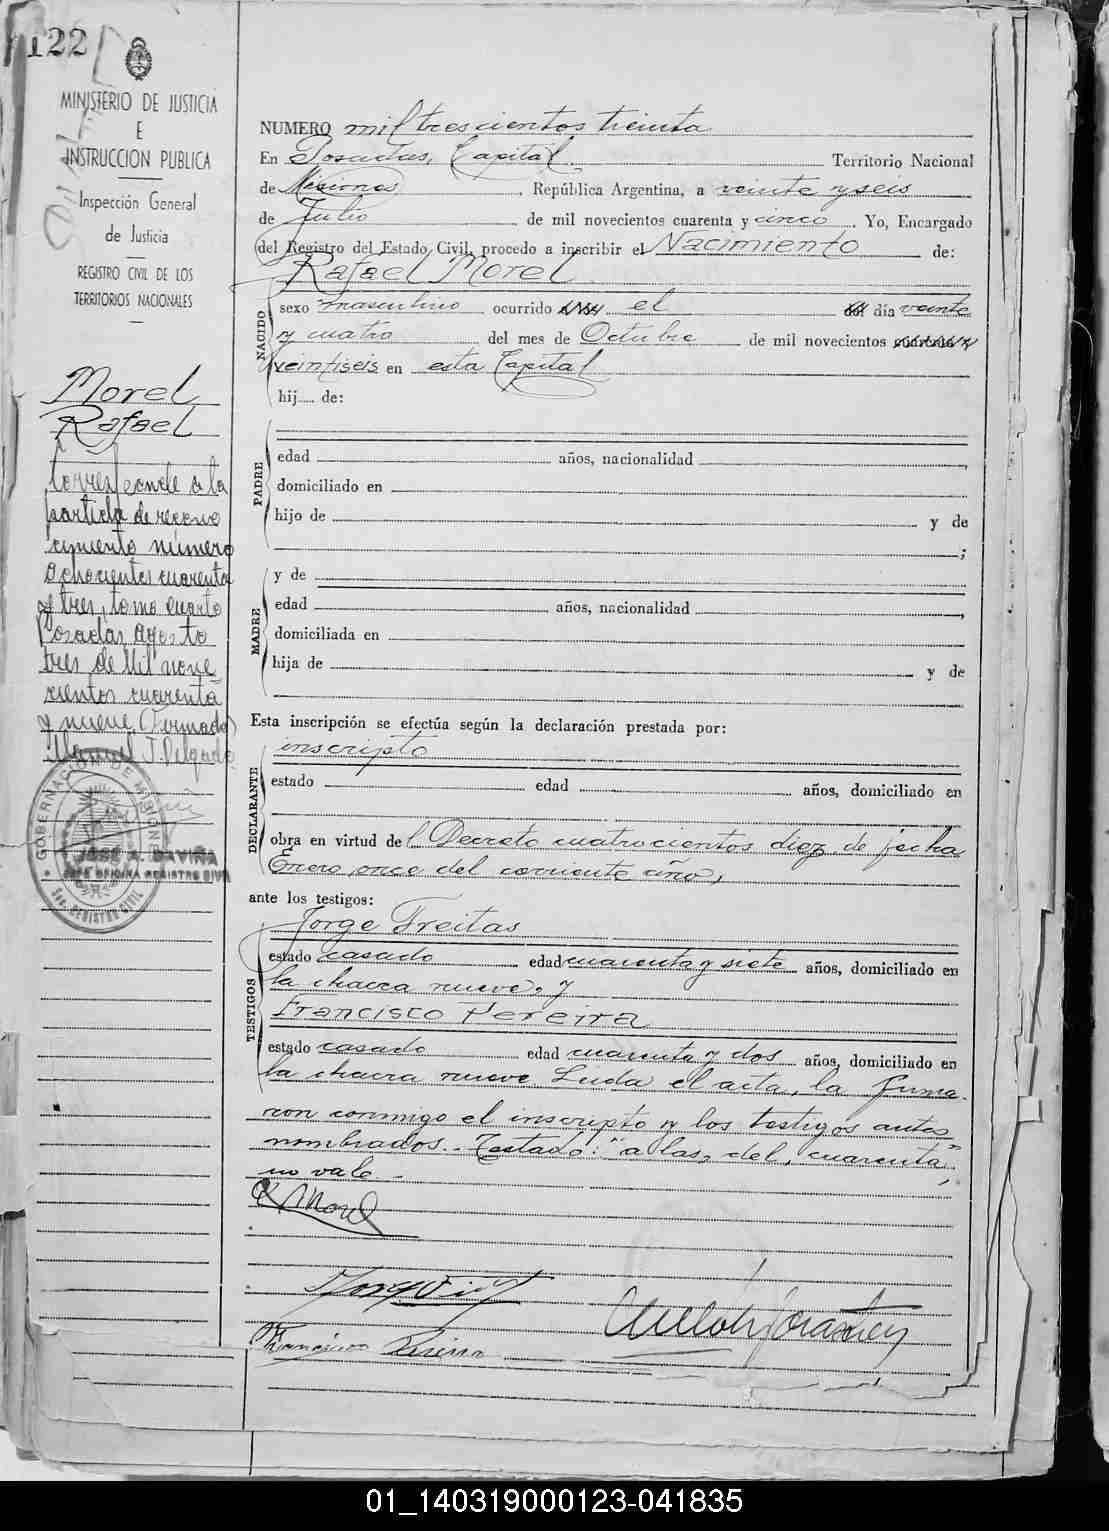 122
MINISTERIO DE JUSTICIA
E
INSTRUCCION PUBLICA
Inspección General
de Justicia
REGISTRO CIVIL DE LOS
TERRITORIOS NACIONALES
Morel
Rafael
Corresponde a la
partida de recono
cimiento número
ochocientos cuarenta
y tres, tomo cuarto
Posadas Agosto
tres de Mil nove
cientos cuarenta
y nueve (Firmado)
Manuel J. Delgado
GOBERNACION DE MISIONES
JOSE A. DAVIÑA
JEFE OFICINA REGISTRO CIVIL
REGISTRO CIVIL
NUMERO mil trescientos treinta
En Posadas, Capital Territorio Nacional
de Misiones, República Argentina, a veinte y seis
de Julio de mil novecientos cuarenta y cinco. Yo, Encargado
del Registro del Estado Civil, procedo a inscribir el Nacimiento de:
Rafael Morel
NACIDO
sexo masculino ocurrido a las el del día veinte
y cuatro del mes de Octubre de mil novecientos cuarenta y
veintiseis en esta Capital
hij..... de:
PADRE
edad años, nacionalidad ,
domiciliado en
hijo de y de
;
MADRE
y de
edad años, nacionalidad ,
domiciliada en
hija de y de
Esta inscripción se efectúa según la declaración prestada por:
DECLARANTE
inscripto
estado edad años, domiciliado en
obra en virtud del Decreto cuatrocientos diez de fecha
Enero once del corriente año,
ante los testigos:
TESTIGOS
Jorge Freitas
estado casado edad cuarenta y siete años, domiciliado en
la chacra nueve, y
Francisco Pereira
estado casado edad cuarenta y dos años, domiciliado en
la chacra nueve Leida el acta, la firma-
ron conmigo el inscripto y los testigos antes
nombrados.- Testado: "a las, del, cuarenta",
no vale.-
R Morel
Francisco Pereira
01_140319000123-041835